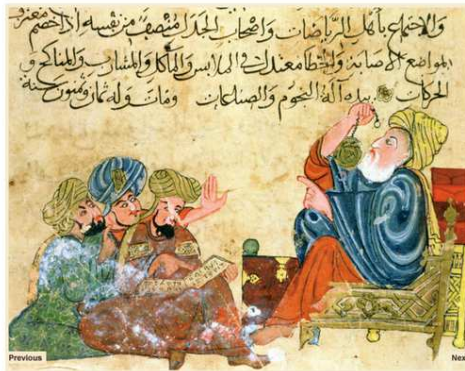 والاجتماع باهل الرياضات واصحاب الجدل منصف من نفسه اذا خصم معترف
بمواضع الاصابة والخطا معتدل في الملابس والماكل والمشارب والمناكح و
الحركات بيده آلة النجوم والصناعات ومات وله ثمان وستون سنة
Previous
Nex